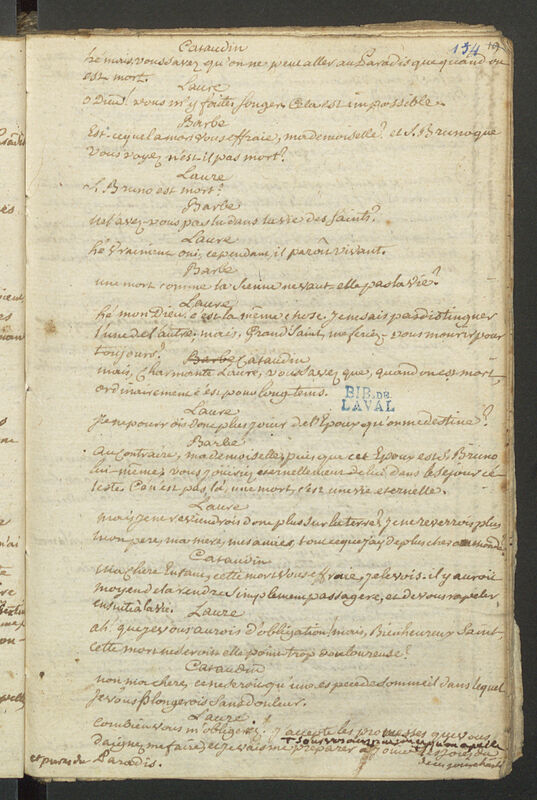 154 19
Cataudin
hé mais, vous savez qu'on ne peut aller au Paradis que quand on
est mort.
Laure
o Dieu! vous m'y faites songer. Cela est impossible.
Barbe
Est-ce que la mort vous effraie, mademoiselle? et S. Bruno que
vous voyez n'est il pas mort?
Laure
S. Bruno est mort?
Barbe
ne l'avez-vous pas lu dans la vie des Saints?
Laure
hé vraiment oui, cependant, il paroît vivant.
Barbe
une mort comme la sienne ne vaut-elle pas la vie?
Laure
hé mon Dieu, c'est la même chose. je ne sais pas distinguer
l'une de l'autre; mais, Grand Saint, me feriez-vous mourir pour
toujours?
Barbe Cataudin
mais, Charmante Laure, vous savez que, quand on est mort,
ordinairement c'est pour longtems.
BIB. DE
LAVAL
Laure
Je ne pourrois donc plus jouir de l'Epoux qu'on me destine?
Barbe
au Contraire, mademoiselle, puisque cet Epoux est S. Bruno
lui-même, vous jouirez eternellement de lui dans le séjour cé-
leste. Ce n'est pas là, une mort, c'est une vie eternelle.
Laure
mais je ne reviendrois donc plus sur la terre? je ne reverrois plus
mon pere, ma mere, mes amies, tout ce que j'ay de plus cher au monde.
Cataudin
ma chere Enfant, cette mort vous effraie, je le vois. il y auroit
moyen de la rendre simplement passagere, et de vous rapeler
ensuite à la vie.
Laure
ah! que je vous aurois d'obligation! mais, Bienheureux Saint
cette mort ne seroit elle point trop douloureuse?
Cataudin
non ma chere, ce ne seroit qu'une espece de sommeil dans lequel
je vous plongerois sans douleur.
Laure
combien vous m'obligerez! j'accepte les promesses que vous
daignez me faire, et je vais me préparer à jouir des joies
et pures du Paradis.